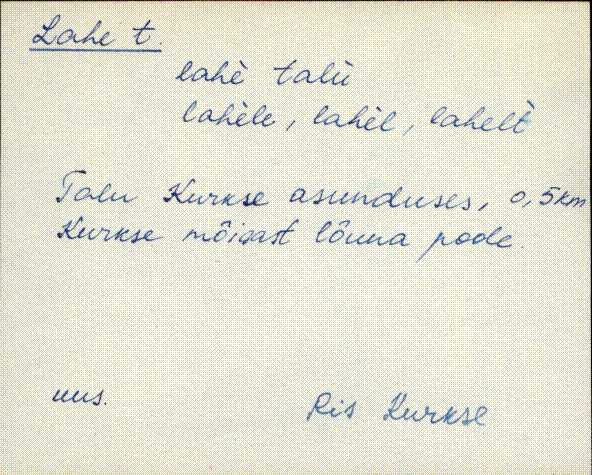 Lahe t.
lahè talù
lahèle, lahèl, lahelt
Talu Kurkse asunduses, 0,5 km
Kurkse mõisast lõuna poole.
uus.
Ris Kurkse